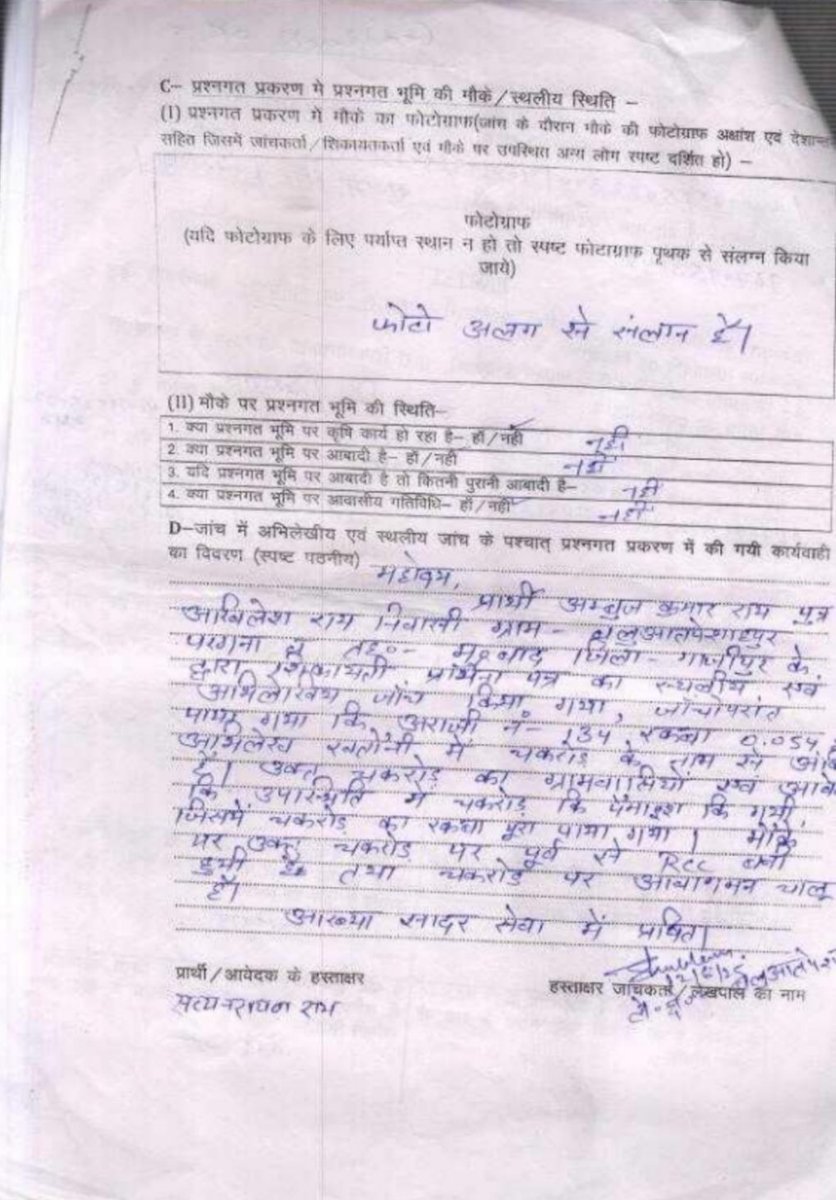 C– प्रश्नगत प्रकरण मे प्रश्नगत भूमि की मौके/स्थलीय स्थिति –
(I) प्रश्नगत प्रकरण में मौके का फोटोग्राफ(जांच के दौरान मौके की फोटोग्राफ अक्षांश एवं देशान्त
सहित जिसमें जांचकर्ता/शिकायतकर्ता एवं मौके पर उपस्थित अन्य लोग स्पष्ट दर्शित हो) –
फोटोग्राफ
(यदि फोटोग्राफ के लिए पर्याप्त स्थान न हो तो स्पष्ट फोटाग्राफ पृथक से संलग्न किया
जाये)
फोटो अलग से संलग्न है।
(II) मौके पर प्रश्नगत भूमि की स्थिति–
1. क्या प्रश्नगत भूमि पर कृषि कार्य हो रहा है– हॉ/नही नही
2. क्या प्रश्नगत भूमि पर आबादी है– हॉ/नही नही
3. यदि प्रश्नगत भूमि पर आबादी है तो कितनी पुरानी आबादी है– नही
4. क्या प्रश्नगत भूमि पर आवासीय गतिविधि– हॉ/नही नही
D–जांच में अभिलेखीय एवं स्थलीय जांच के पश्चात् प्रश्नगत प्रकरण में की गयी कार्यवाही
का विवरण (स्पष्ट पठनीय)
महोदय,
प्रार्थी अम्बुज कुमार राय पुत्र
अखिलेश राय निवासी ग्राम–
परगना व तह०– मु०बाद जिला– गाजीपुर के
द्वारा शिकायती प्रार्थना पत्र का स्थलीय एवं
अभिलेखीय जांच किया गया, जांचोपरांत
पाया गया कि अराजी नं– 134 रकबा 0.054
अभिलेख खतौनी में चकरोड के नाम से
है। उक्त चकरोड का ग्रामवासियों एवं
कि उपस्थिति में चकरोड कि पैमाइश कि गयी,
जिसमें चकरोड का रकबा पूरा पाया गया। मौके
पर उक्त चकरोड पर पूर्व से RCC बनी
हुयी है तथा चकरोड पर आवागमन चालू
है।
आख्या सादर सेवा में प्रेषित।
प्रार्थी/आवेदक के हस्ताक्षर
हस्ताक्षर जांचकर्ता/लेखपाल का नाम
सत्यनरायन राम